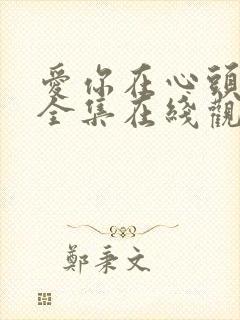 愛你在心頭
全集在綫觀
鄭秉文